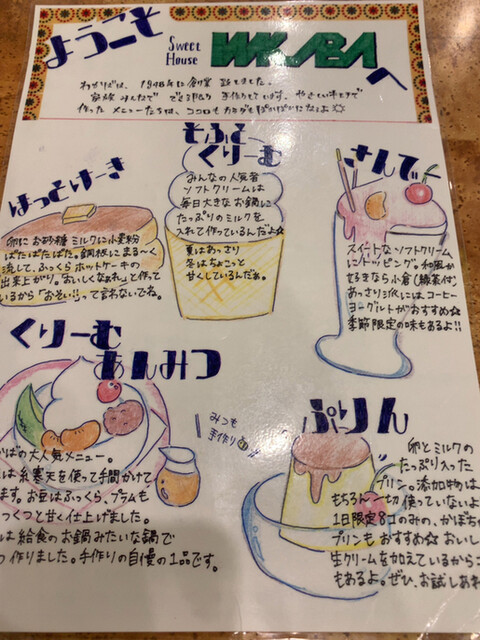 ようこそ
Sweet House WAKABA へ
わかばは、1948年に創業致しました。
家族みんなで できる限り 手作りしています。やさしい気持で
作ったメニューたちは、ココロもカラダもぽかぽかだなよ☆
ほっとけーき
卵にお砂糖 ミルクに小麦粉
ぱたぱたぱた。銅板にまる〜く
流して、ふっくらホットケーキの
出来上がり。おいしくなぁれ♪と作って
いるから"おそい!!"って言わないでね。
そふとくりーむ
みんなの人気者
ソフトクリームは
毎日大きなお鍋に
たっぷりのミルクを
入れて作っているんだよ☆
夏はあっさり
冬はちょこっと
甘くしているんだぁ。
さんでー
スイートなソフトクリーム
にトッピング。和風が
好きなら小倉(緑茶付)
あっさり派には、コーヒー
ヨーグルトがおすすめ☆
季節限定の味もあるよ!!
くりーむあんみつ
かばの大人気メニュー。
は糸寒天を使って手間かけて
ます。お豆はふっくら、プラムも
つくつと甘く仕上げました。
は給食のお鍋みたいな鍋で
つ作りました。手作りの自慢の1品です。
みつも
手作り
ぷりん
卵とミルクの
たっぷり入った
プリン。添加物は
もちろん一切使っていないよ
1日限定8コのみの、かぼちゃ
プリンもおすすめ☆おいし
生クリームを加えているからコ
もあるよ。ぜひ、お試しあれ